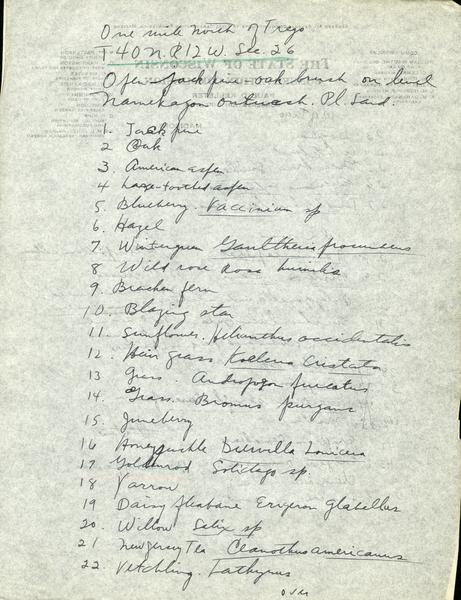 One mile north of Trego
T 40 N. R 12 W. Sec. 26
Open Jack pine oak brush on level
Namekagon outwash. Pl. Sand
THE STATE OF WISCONSIN
1. Jack pine
2 Oak
3. American aspen
4 Large-toothed aspen
5. Blueberry. Vaccinium sp
6. Hazel
7. Wintergreen Gaultheria procumbens
8 Wild rose Rosa humilis
9. Bracken fern
10. Blazing star
11. Sunflower. Helianthus occidentalis
12. Hair grass Koeleria Cristata
13 Grass. Andropogon furcatus
14. Grass. Bromus purgans
15. Juneberry
16 Honeysuckle Diervilla Lonicera
17 Goldenrod Solidago sp.
18 Yarrow
19 Daisy fleabane Erigeron glabellus
20. Willow Salix sp
21 New Jersey Tea Ceanothus americanus
22. Vetchling. Lathyrus
over